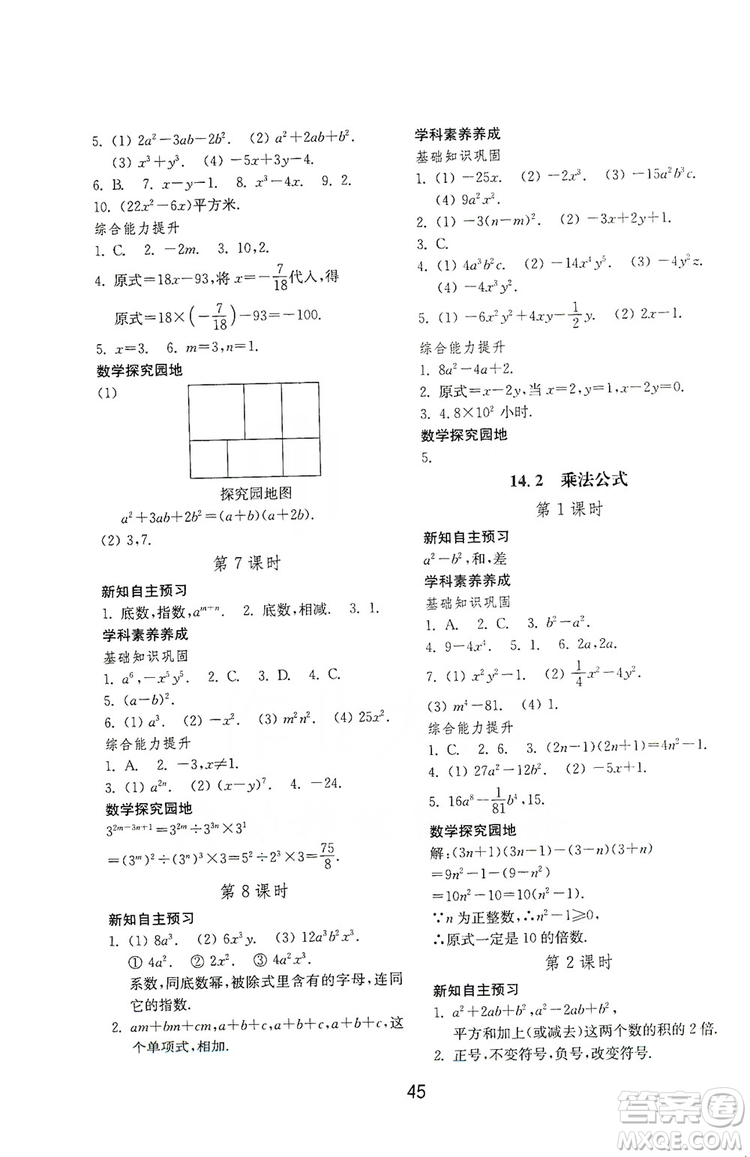 5. (1) 2a²－3ab－2b². (2) a²＋2ab＋b².
(3) x³＋y³. (4) －5x＋3y－10.
6. B. 7. x－1. 8. x³－4x. 9. 2.
10. (22x²－6x)平方米.
综合能力提升
1. C. 2. －2m. 3. 10,2.
4. 原式＝18x－93,将 x＝－7/18代入,得
原式＝18×(－7/18)－93＝－100.
5. x＝3. 6. m＝3,n＝1.
数学探究园地
(1)
探究园地图
a²＋3ab＋2b²＝(a＋b)(a＋2b).
(2) 3,7.
第 7 课时
新知自主预习
1. 底数,指数,aᵐ⁺ⁿ. 2. 底数,相减. 3. 1.
学科素养养成
基础知识巩固
1. a⁶,－x⁵y⁵. 2. C. 3. D. 4. C.
5. (a－b)².
6. (1) a³. (2) －x². (3) m²n². (4) 25x².
综合能力提升
1. A. 2. x≠1.
3. (1) a²ⁿ. (2) (x－y)⁷. 4. 2.
数学探究园地
3²ᵐ⁻³ⁿ⁺¹＝3²ᵐ÷3³ⁿ×3¹
＝(3ᵐ)²÷(3ⁿ)³×3＝5²÷2³×3＝75/8.
第 8 课时
新知自主预习
1. (1) 8a³. (2) 6x³y. (3) 12a³b²x³.
① 4a². ② 2x². ③ 4a²x³.
系数,同底数幂,被除式里含有的字母,连同
它的指数.
2. am＋bm＋cm,a＋b＋c,a＋b＋c,这
个单项式,相加.
学科素养养成
基础知识巩固
1. (1) －25x. (2) －2x³. (3) －15a²b³c.
(4) 9a²x⁴.
2. (1) －3(n－m)². (2) 6×10⁵.
3. C.
4. (1) 4a³b²c. (2) －14x⁴y⁵. (3) 4y²z.
(4) －4x³y⁴.
5. (1) －6x²y²＋4xy－1/2y. (2) x－y.
综合能力提升
1. 8a²－4a＋2.
2. 原式＝x－2y,当 x＝2,y＝1,x－2y＝0.
3. 4.8×10² 小时.
数学探究园地
5.
14.2 乘法公式
第 1 课时
新知自主预习
a²－b²,和,差
学科素养养成
基础知识巩固
1. A. 2. C. 3. b²－a².
4. 9－4x⁴. 5. 1. 6. 2a,2a.
7. (1) x²y²－1. (2) 1/4x²－4y².
(3) m⁴－81. (4) 1.
综合能力提升
1. C. 2. 6. 3. (2n－1)(2n＋1)＝4n²－1.
4. (1) 27a²－12. (2) b²－2ab.
5. 16a⁸－1/81b⁴,15.
数学探究园地
解:(3n＋1)(3n－1)－(3－n)(3＋n)
＝9n²－1－(9－n²)
＝10n²－10＝10(n²－1).
∵n 为正整数,∴n²－1≥0.
∴原式一定是 10 的倍数.
第 2 课时
新知自主预习
1. a²＋2ab＋b²,a²－2ab＋b²,
平方和加上(或减去)这两个数的积的 2 倍.
2. 正号,不变符号,负号,改变符号.
45
答案圈
MXQE.COM